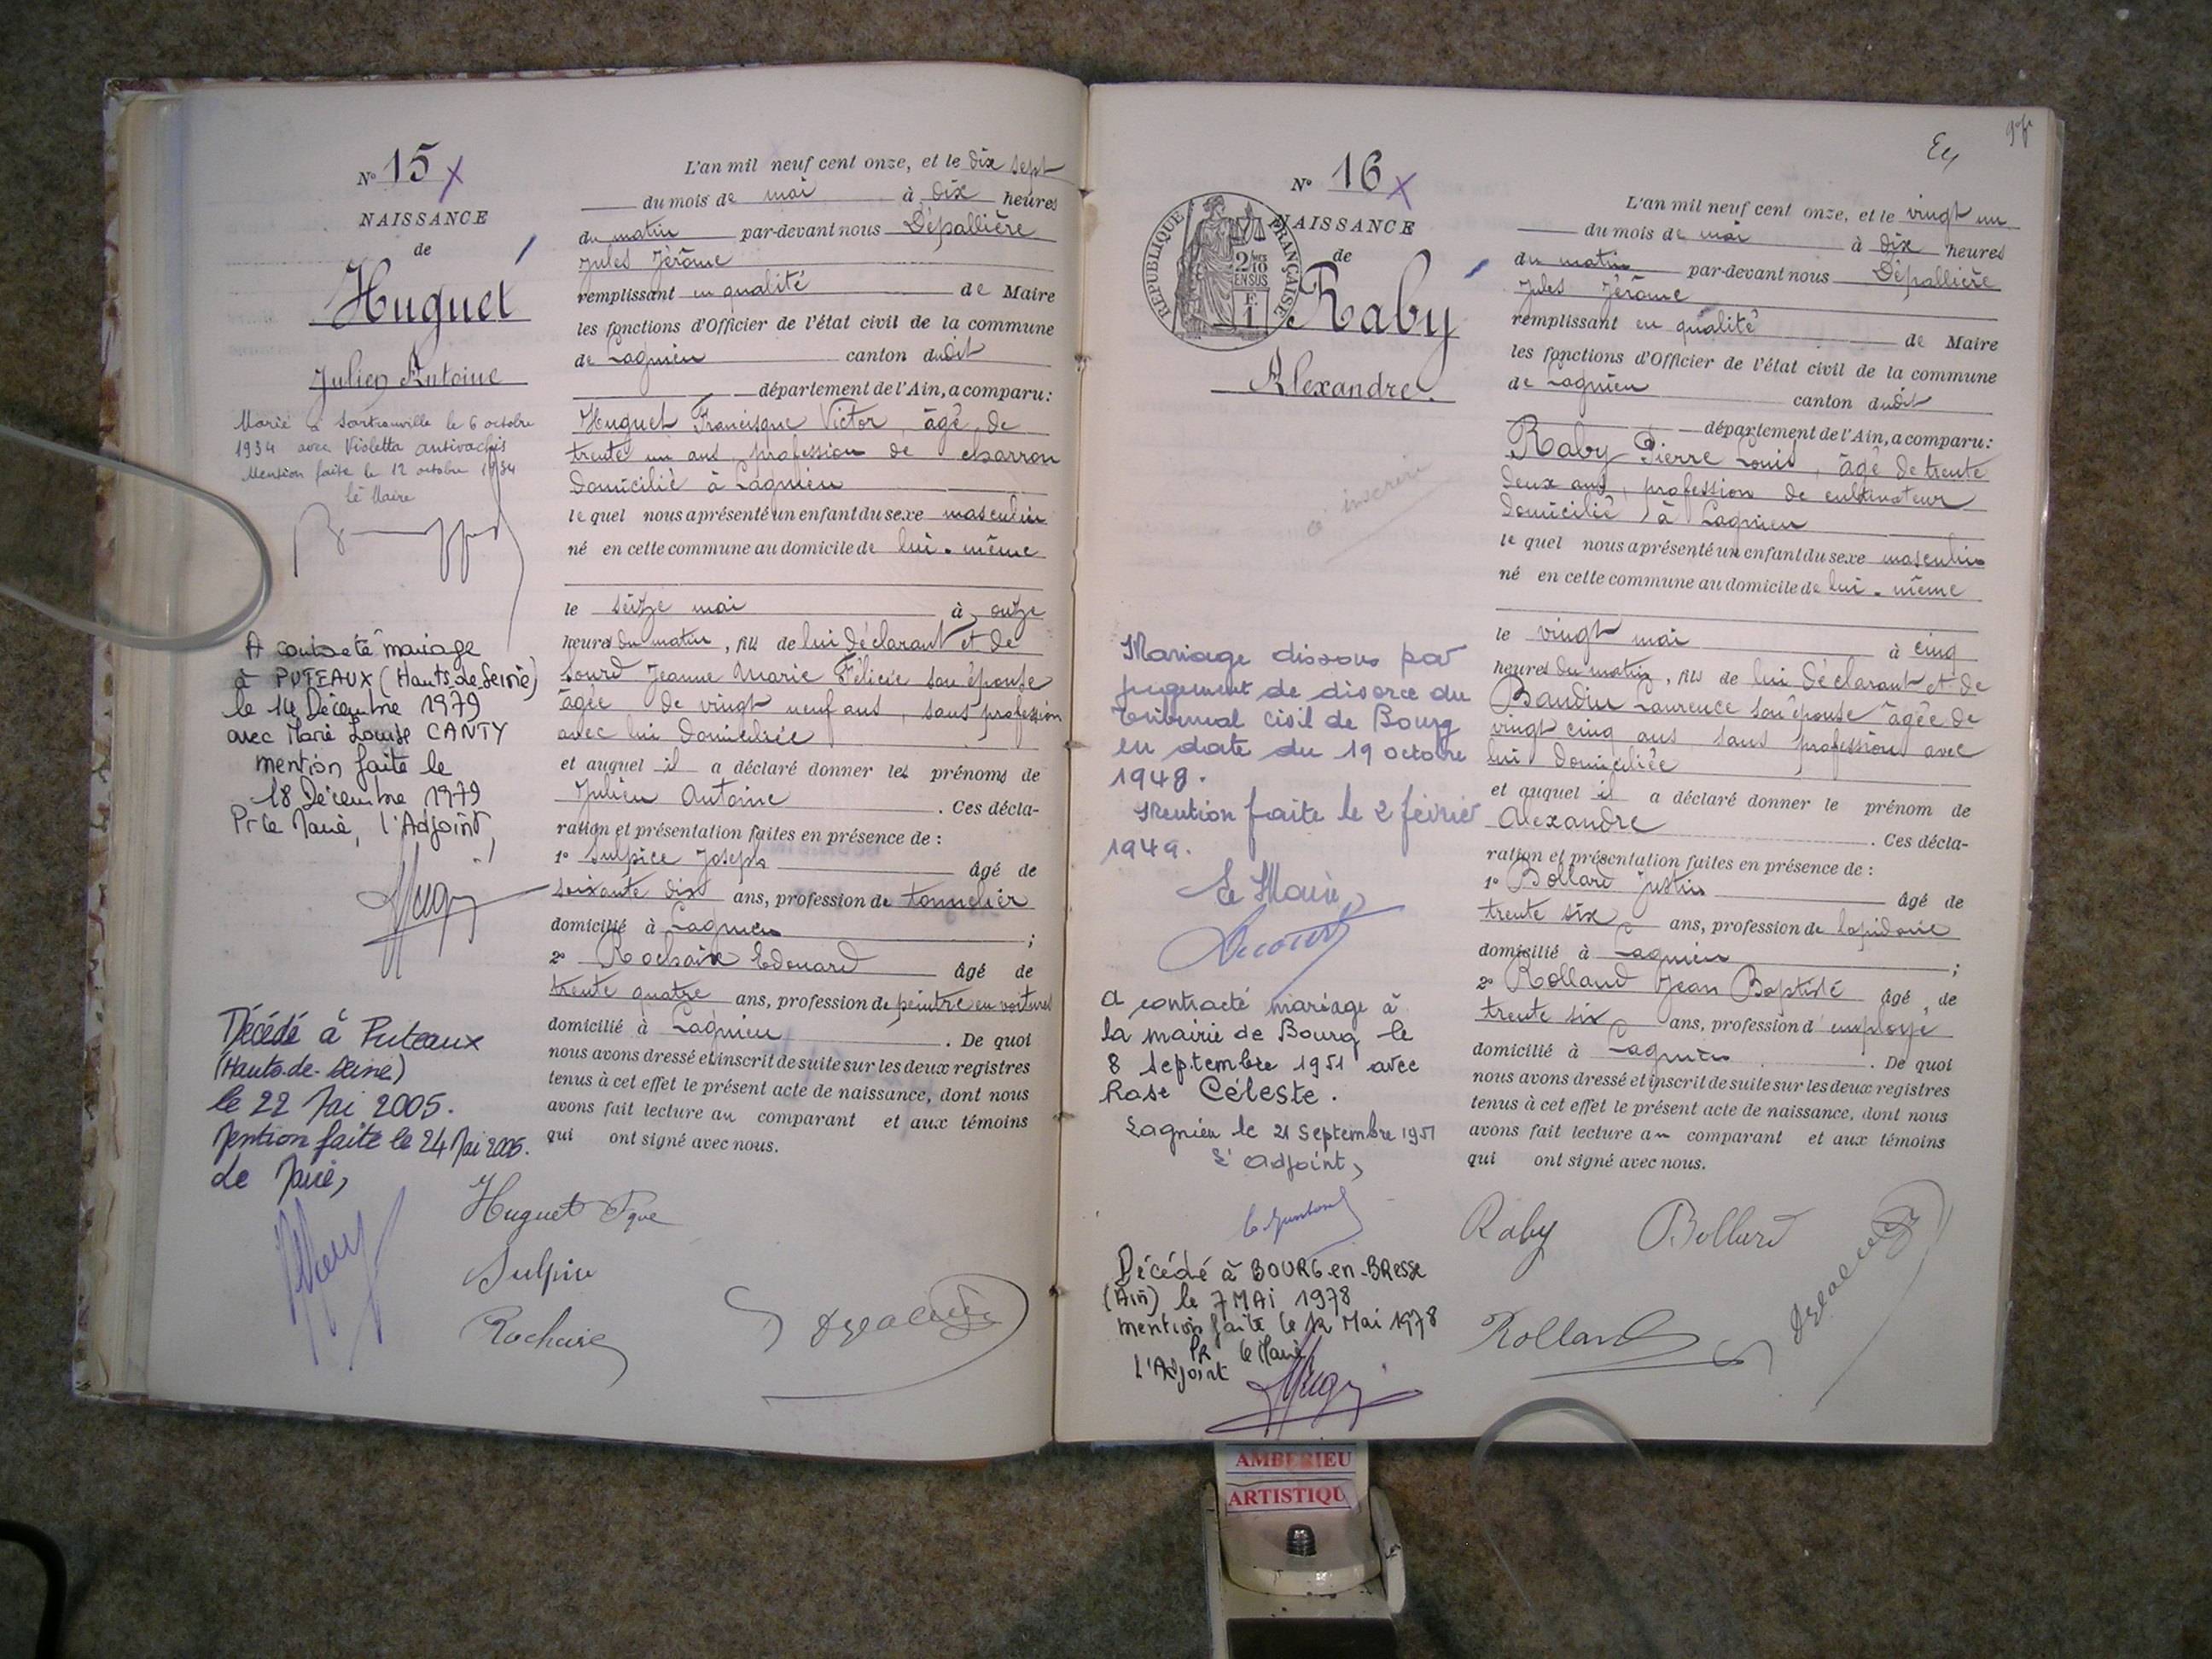 N° 15 X
NAISSANCE
de
Huguet
Julien Antoine
Marié à Sartrouville le 6 octobre
1934 avec Violetta Antivachis
Mention faite le 12 octobre 1934
Le Maire
A contracté mariage
à PUTEAUX (Hauts-de-Seine)
le 14 Décembre 1979
avec Marie Louise CANTY
mention faite le
18 Décembre 1979
Pr le Maire, l'Adjoint,
Décédé à Puteaux
(Hauts-de-Seine)
le 22 Mai 2005.
Mention faite le 24 Mai 2005.
Le Maire,
L'an mil neuf cent onze, et le dix sept
du mois de mai à dix heures
du matin par-devant nous Dépallière
Jules Jérôme
remplissant en qualité de Maire
les fonctions d'Officier de l'état civil de la commune
de Lagnieu canton dudit
département de l'Ain, a comparu:
Huguet Francisque Victor, âgé de
trente un ans, profession de charron
domicilié à Lagnieu
lequel nous a présenté un enfant du sexe masculin
né en cette commune au domicile de lui-même
le seize mai à onze
heures du matin, fils de lui déclarant et de
Sourd Jeanne Marie Félicie son épouse
âgée de vingt neuf ans, sans profession
avec lui domiciliée
et auquel il a déclaré donner les prénoms de
Julien Antoine . Ces décla-
ration et présentation faites en présence de :
1° Sulpice Joseph âgé de
soixante dix ans, profession de tonnelier
domicilié à Lagnieu ;
2° Rochaix Edouard âgé de
trente quatre ans, profession de peintre en voitures
domicilié à Lagnieu . De quoi
nous avons dressé et inscrit de suite sur les deux registres
tenus à cet effet le présent acte de naissance, dont nous
avons fait lecture au comparant et aux témoins
qui ont signé avec nous.
Huguet Fque
Sulpice
Rochaix
N° 16 X
NAISSANCE
de
Raby
Alexandre.
REPUBLIQUE FRANÇAISE
2/10
EN SUS
F.
1
à inscrire
Mariage dissous par
jugement de divorce du
Tribunal civil de Bourg
en date du 19 octobre
1948.
Mention faite le 2 février
1949.
Le Maire,
A contracté mariage à
la mairie de Bourg le
8 Septembre 1951 avec
Rose Céleste.
Lagnieu le 21 Septembre 1951
L'adjoint,
Décédé à BOURG-en-BResse
(Ain) le 7 MAI 1978
mention faite le 12 Mai 1978
PR le Maire
l'Adjoint
L'an mil neuf cent onze, et le vingt un
du mois de mai à dix heures
du matin par-devant nous Dépallière
Jules Jérôme
remplissant en qualité de Maire
les fonctions d'Officier de l'état civil de la commune
de Lagnieu canton dudit
département de l'Ain, a comparu:
Raby Pierre Louis, âgé de trente
deux ans, profession de cultivateur
domicilié à Lagnieu
lequel nous a présenté un enfant du sexe masculin
né en cette commune au domicile de lui-même
le vingt mai à cinq
heures du matin, fils de lui déclarant et de
Baudin Laurence son épouse âgée de
vingt cinq ans sans profession avec
lui domiciliée
et auquel il a déclaré donner le prénom de
Alexandre . Ces décla-
ration et présentation faites en présence de :
1° Bollard Justin âgé de
trente six ans, profession de lapidaire
domicilié à Lagnieu ;
2° Rolland Jean Baptiste âgé de
trente six ans, profession d'employé
domicilié à Lagnieu . De quoi
nous avons dressé et inscrit de suite sur les deux registres
tenus à cet effet le présent acte de naissance, dont nous
avons fait lecture au comparant et aux témoins
qui ont signé avec nous.
Raby Bollard
Rolland
AMBERIEU
ARTISTIQU